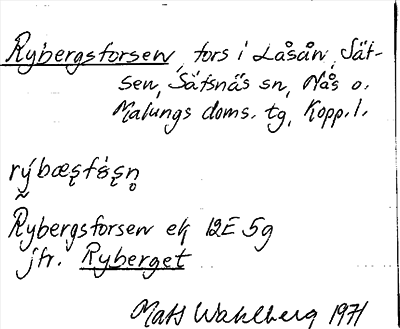 Rybergsforsen, fors i Låsån, Sät-
sen, Sätsnäs sn, Nås o.
Malungs doms. tg, Kopp. l.
Rybergsforsen ek 12E 5g
jfr. Ryberget
Mats Wahlberg 1971